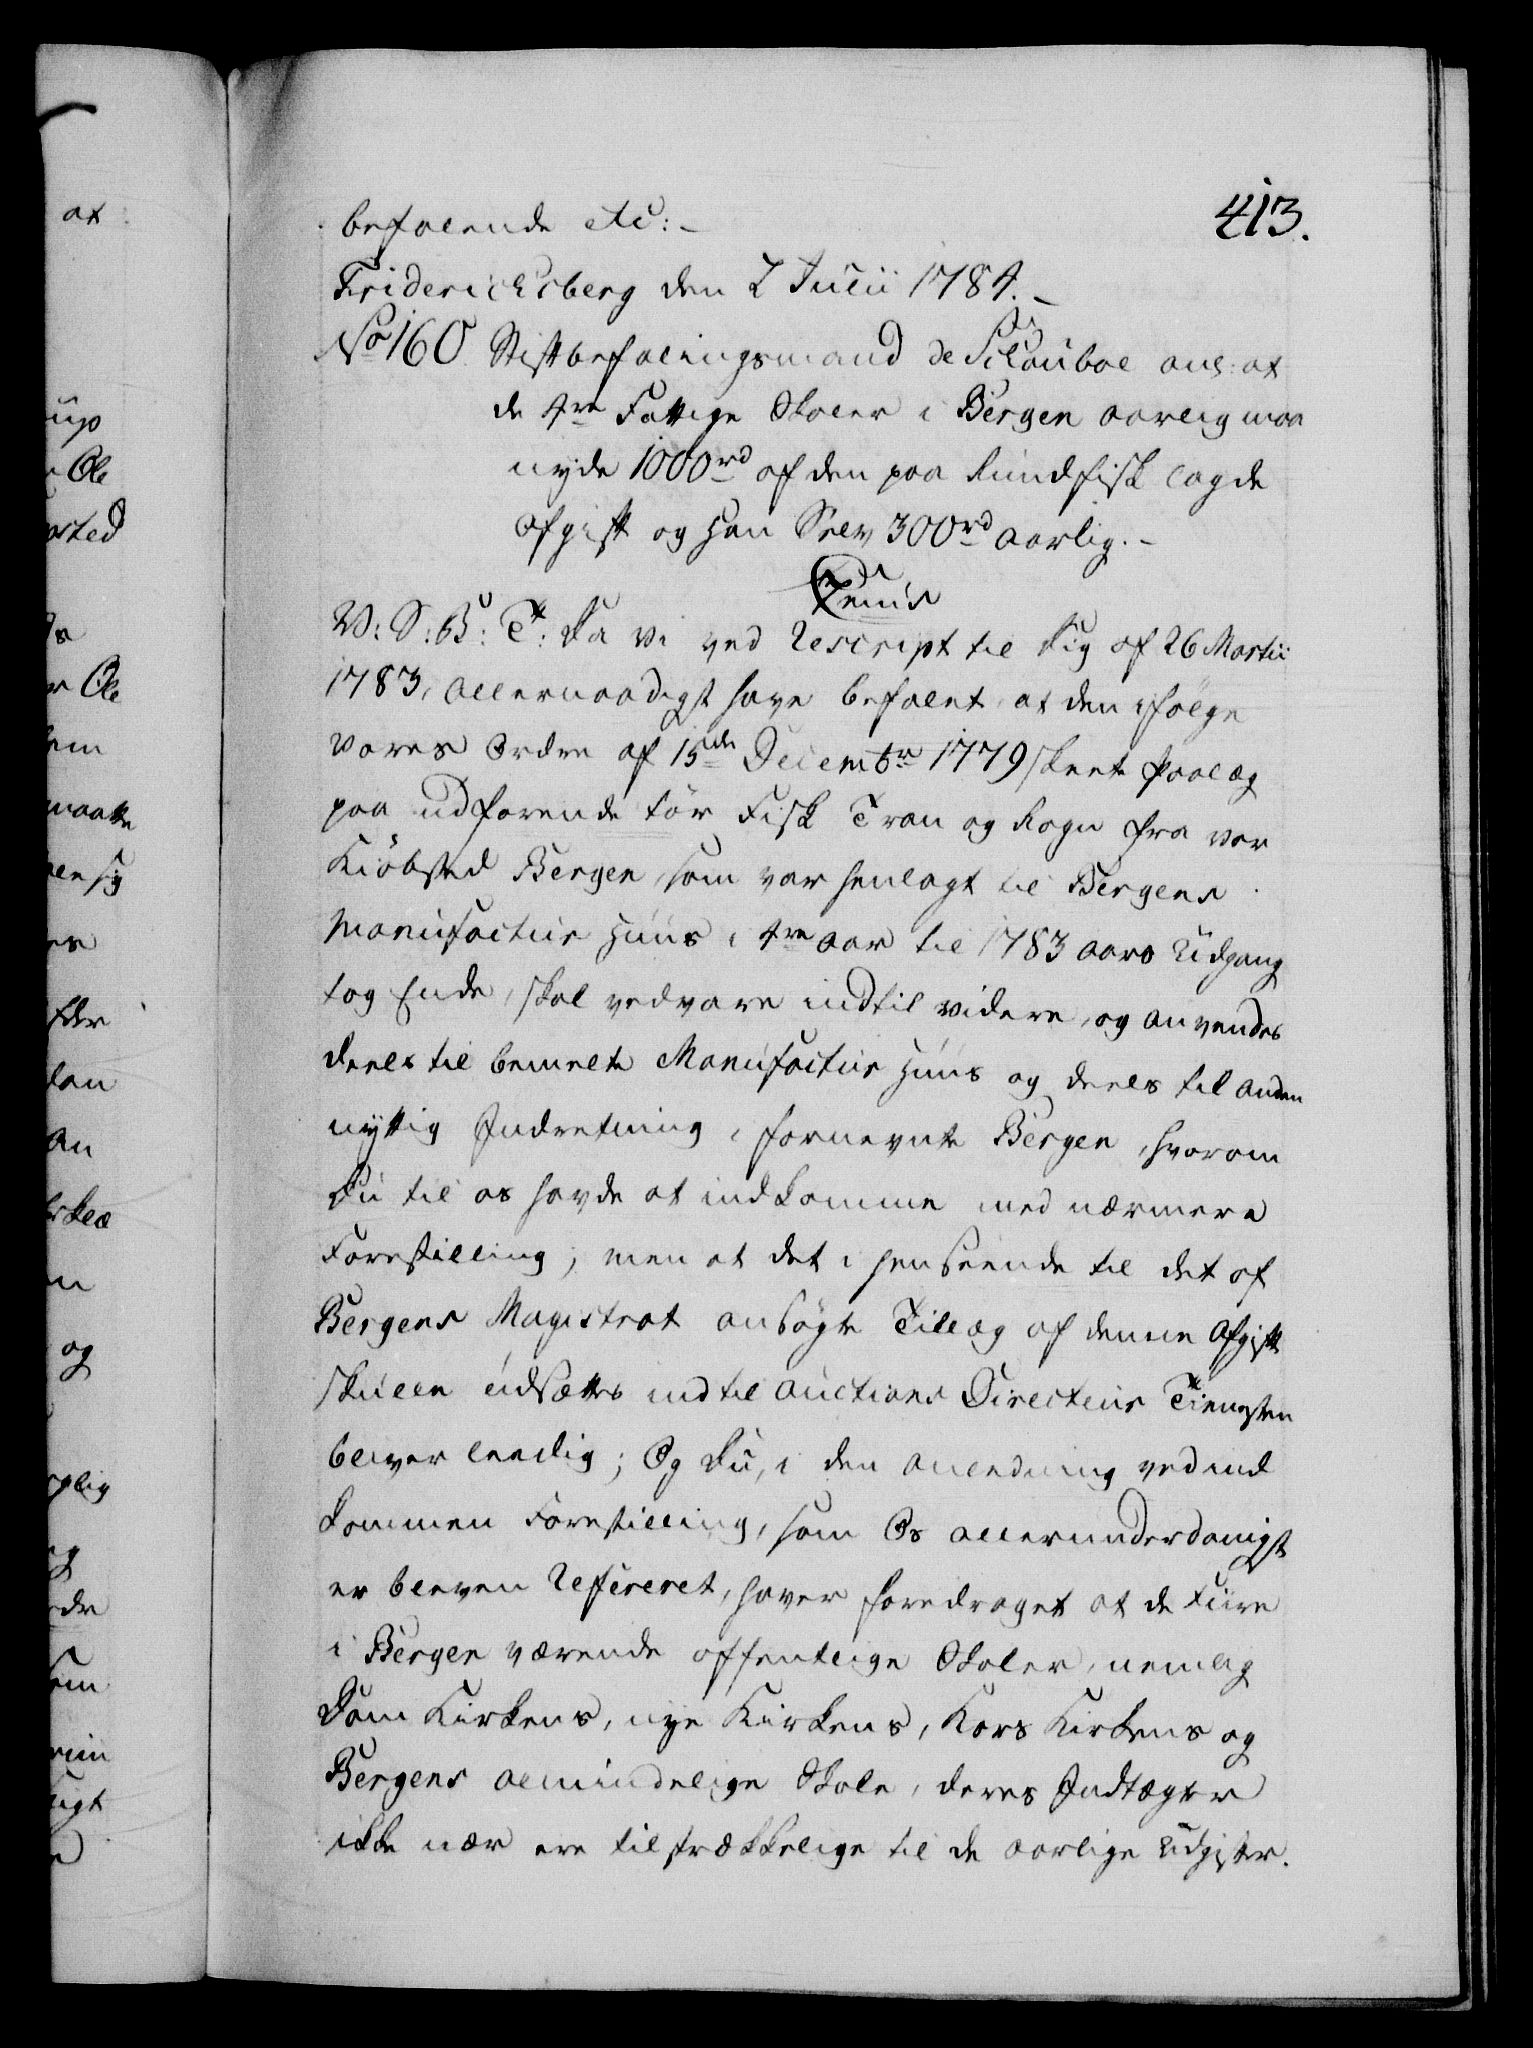 413.
befalende etc: –
Friderichsberg den 7 Julii 1784. –
No 160 Stiftbefalingsmand de Schouboe anl: at
de 4re Fattige Skoler i Bergen aarlig maa
nyde 1000rd af den paa Rundfisk lagde
Afgift og han Selv 300rd aarlig. –
V: S: B: T: Da vi ved Rescript til dig af 26 Martii
1783, allernaadigst have befalet, at den ifølge
vores Ordre af 15de Decembr 1779 skeete Paalæg
paa udførende tør Fisk Tran og Rogn fra vor
Kiøbsted Bergen, som var henlagt til Bergens
Manufactur Huus i 4re Aar til 1783 Aars Udgang
tog Ende, skal vedvare indtil videre, og anvendes
deels til bemelte Manufactur Huus og deels til anden
nyttig Indretning i fornevnte Bergen, hvorom
Du til os havde at indkomme med nærmere
Forestilling; men at det i henseende til det af
Bergens Magistrat ansøgte Tillæg af denne Afgift
skulle udsættes indtil Auctions Directeur Tienesten
bliver leedig; Og Du, i den Anledning ved ind
kommen Forestilling, som Os allerunderdanigst
er bleven Refereret, haver foredraget at de Fiire
i Bergen værende offentlige Skoler, nemlig
Dom Kirkens, nye Kirkens, Kors Kirkens og
Bergens almindelige Skole, deres Indtægter
ikke nær ere tilstrækkelige til de aarlige Udgifter.
at
up
Ole
orted
r Ole
maatte
en sig
es
den
an
og